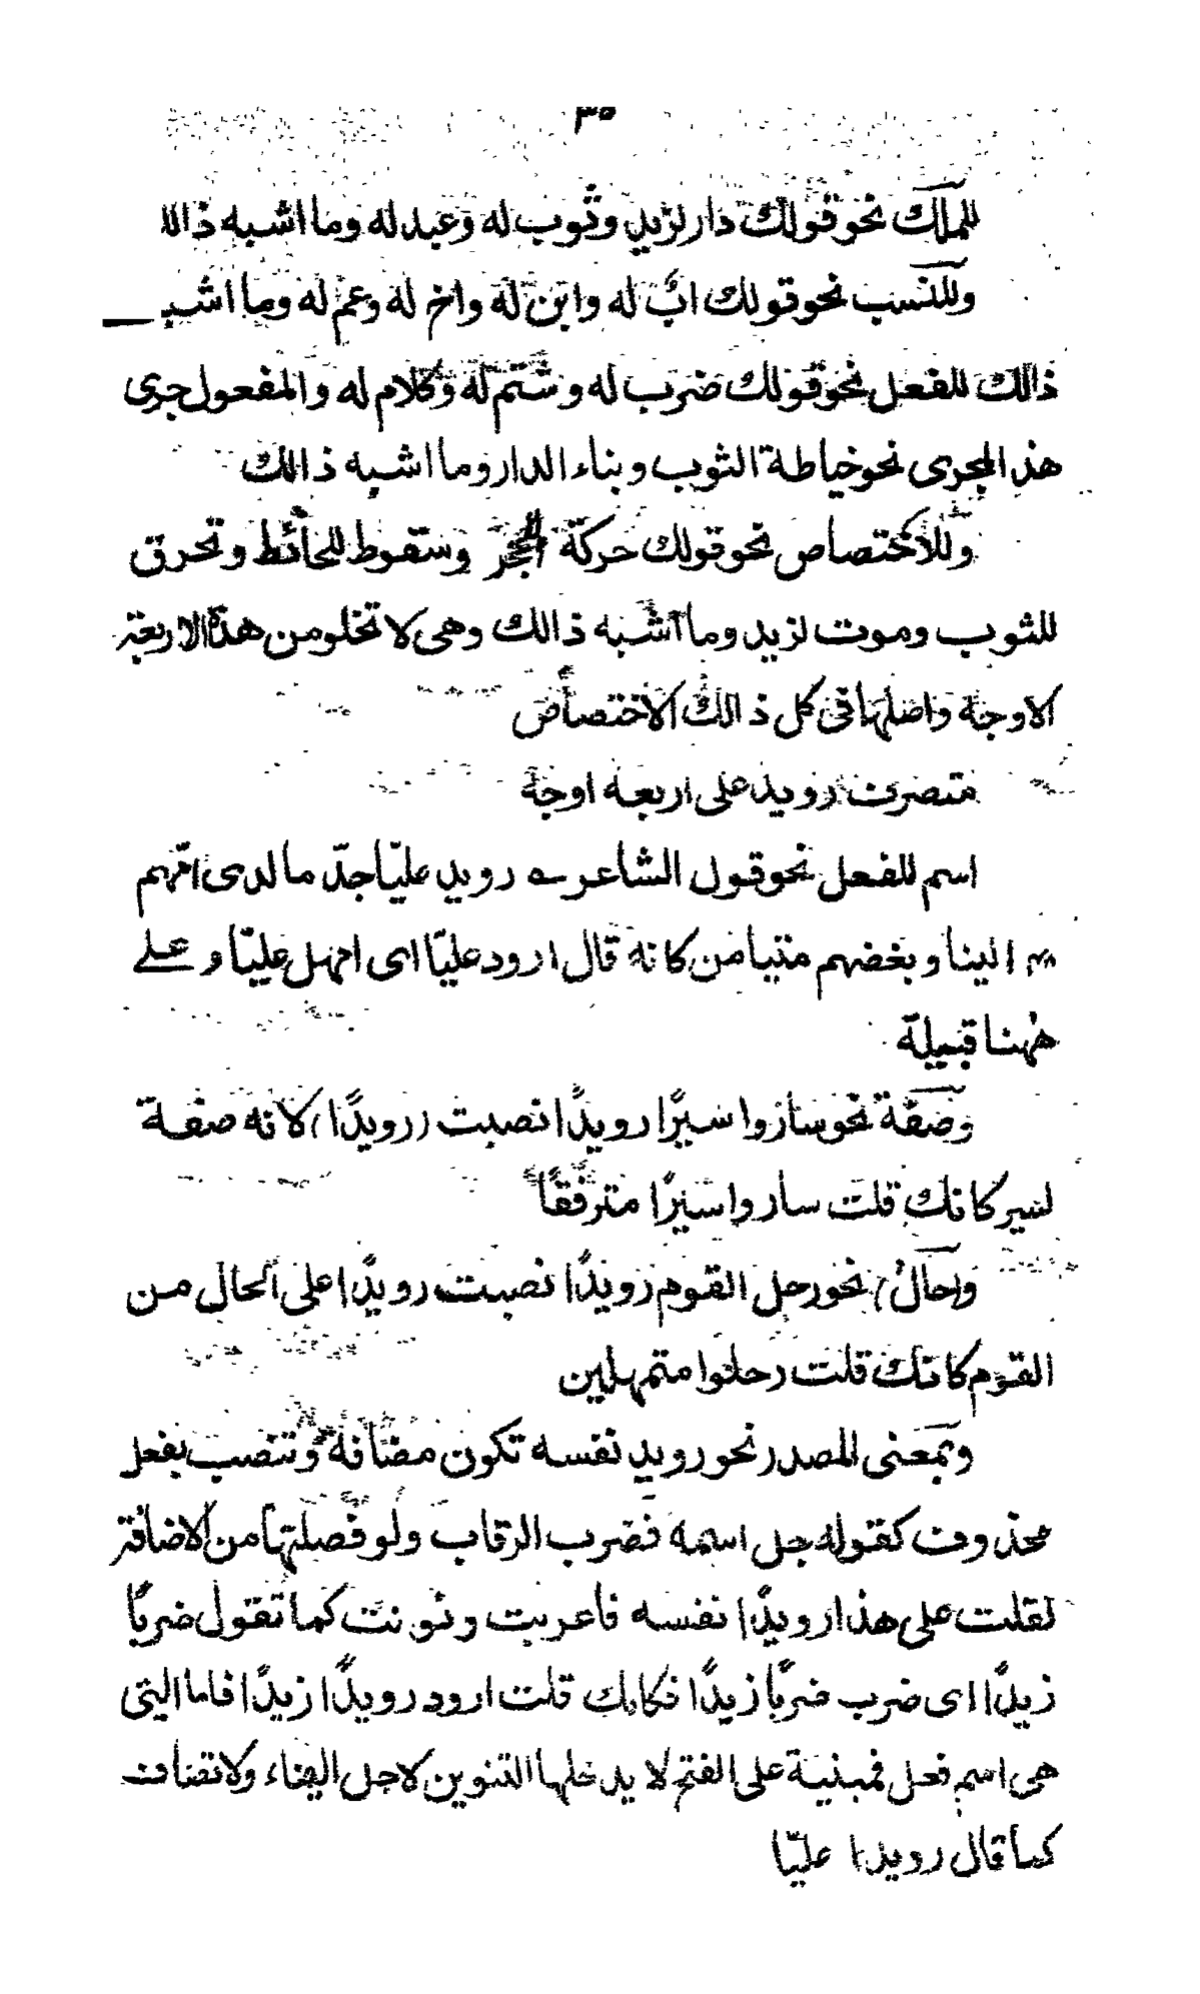 ٣٥
للملك نحو قولك دار لزيد وثوب له وعبد له وما اشبه ذالك
وللنسب نحو قولك ابٌ له وابن له واخ له وعم له وما اشبه
ذالك للفعل نحو قولك ضرب له وشتم له وكلام له والمفعول جرى
هذ المجرى نحو خياطة الثوب وبناء الدار وما اشبه ذالك
وللاختصاص نحو قولك حركة الحجر وسقوط للحائط وتحرق
للثوب وموت لزيد وما اشبه ذالك وهى لا تخلو من هذه الاربعة
الاوجة واصلها فى كل ذالك الاختصاص
متصرف رويد على اربعة اوجة
اسم للفعل نحو قول الشاعر رويد عليّا جدّ ما لدى امّهم
الينا وبغضهم متيا من كانه قال ارود عليّا اى امهل عليّا و على
ههنا قبيلة
وصفة نحو ساروا سيرًا رويدًا نصبت (رويدًا) لانه صفة
لسير كانك قلت ساروا سيرًا مترفقًا
وحال نحو رحل القوم رويدًا نصبت رويدًا على الحال من
القوم كانك قلت رحلوا متمهلين
وبمعنى المصدر نحو رويد نفسه تكون مضافة وتنصب بفعل
محذوف كقوله جل اسمه فضرب الرقاب ولو فصلتها من الاضافة
لقلت على هذا رويدًا نفسه فاعربت ونونت كما تقول ضربًا
زيدًا اى ضرب ضربًا زيدًا فكانك قلت ارود رويدًا زيدًا فاما التى
هى اسم فعل فمبنية على الفتح لا يدخلها التنوين لاجل البناء ولا تضاف
كما قال رويدا عليّا